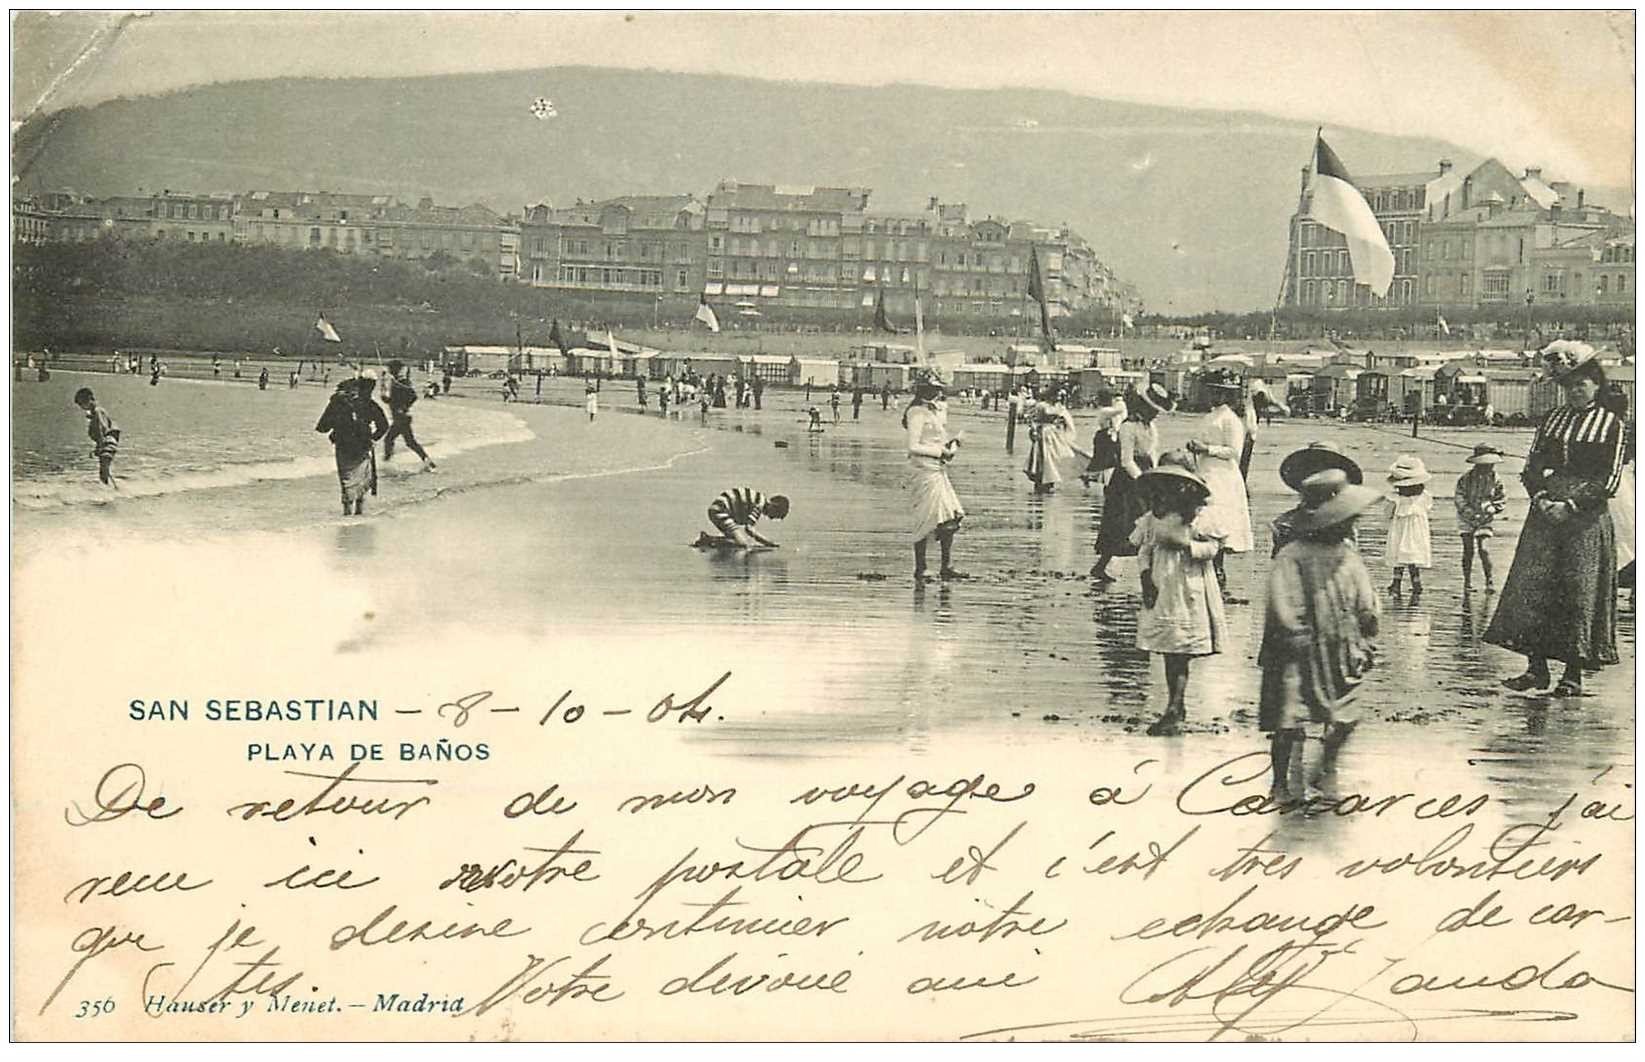 SAN SEBASTIAN - 8 - 10 - 04.
PLAYA DE BAÑOS
De retour de mon voyage à Canaries j'ai
recu ici votre postale et c'est tres volontiers
que je desire continuier nôtre echange de car-
tes. Votre dévoué ami
356 Hauser y Menet. - Madrid